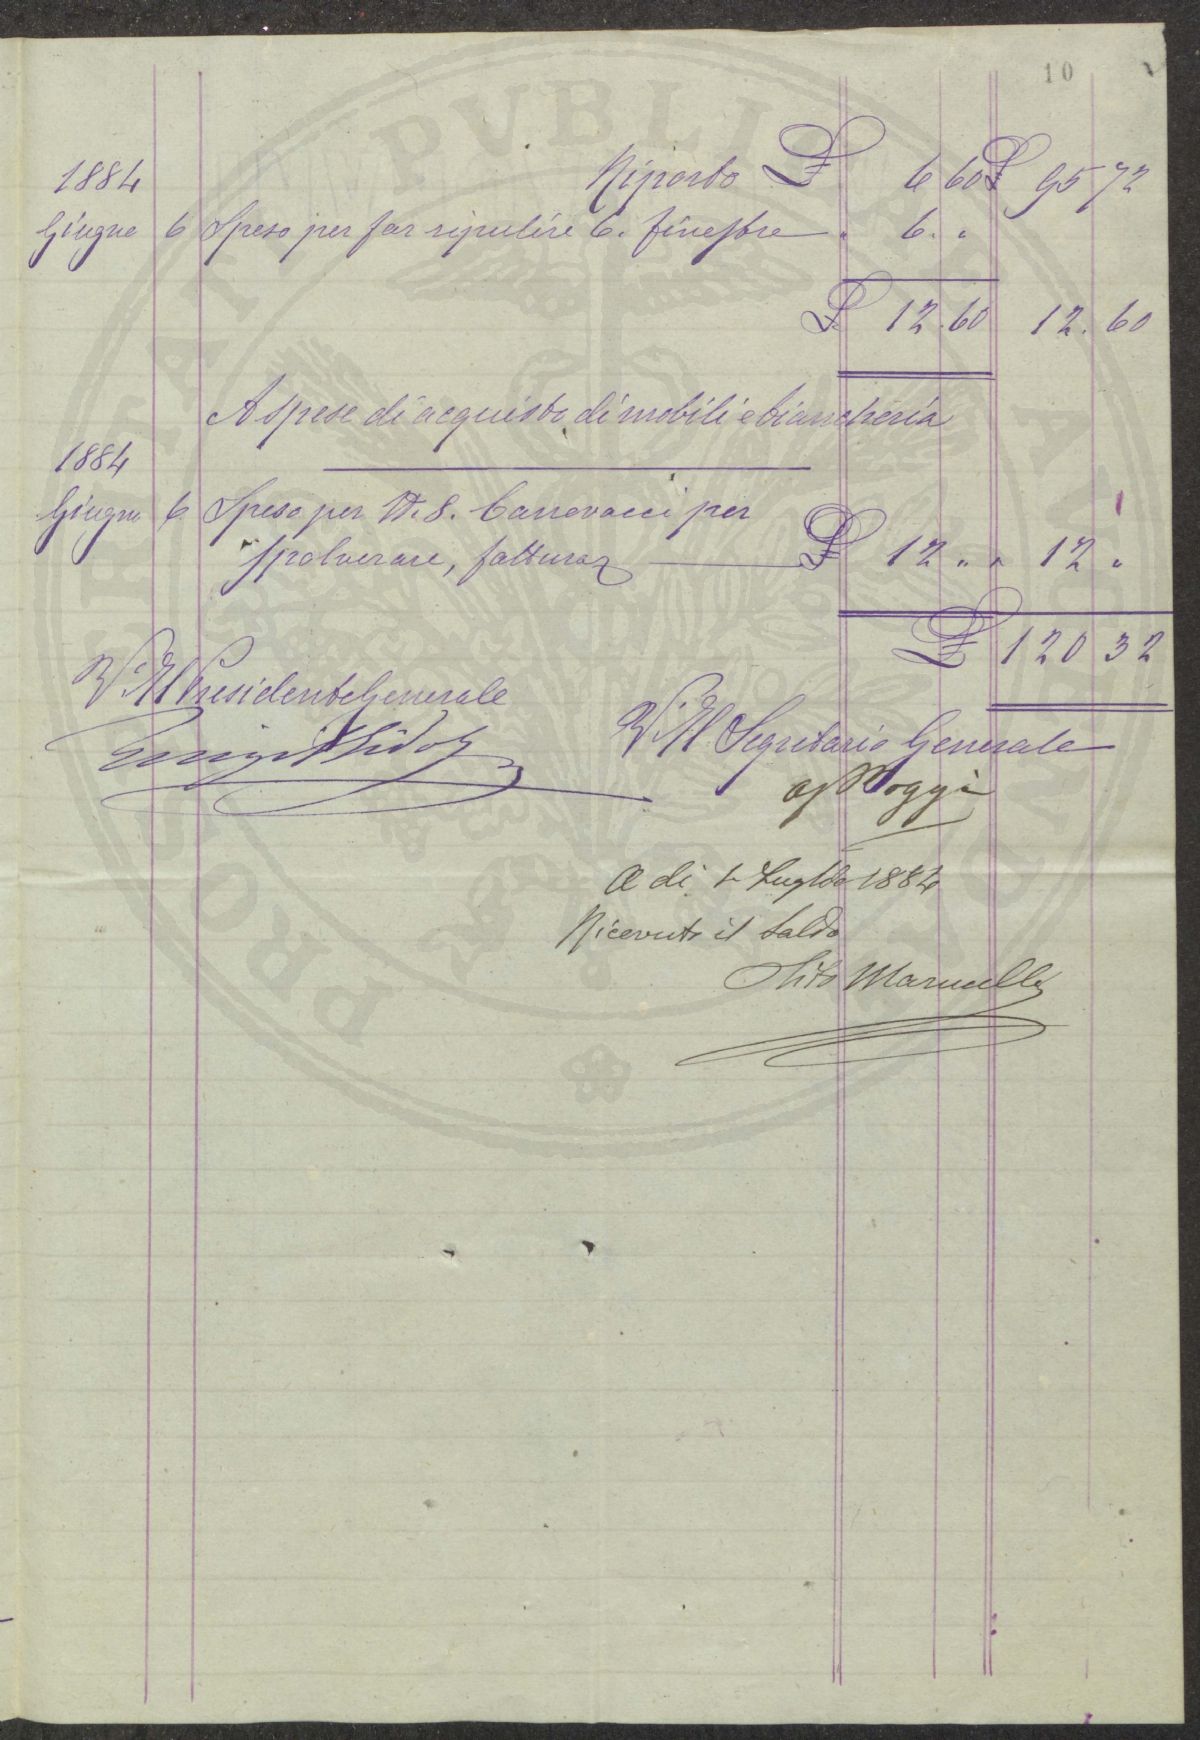 10
1884 Riporto £ 6 60 £ 95 72
Giugno 6 Speso per far ripulire 6. finestre " 6. "
£ 12.60 12.60
A spese di acquisto di mobili e biancheria
1884
Giugno 6 Speso per N. 8. Canovacci per
spolverare, fattura £ 12 " " 12 "
£ 120 32
V. Il Presidente Generale
V. Il Segretario Generale
Poggi
A di 1 Luglio 1884
Ricevuto il saldo
Tito Marucelli
PRO PVBLI